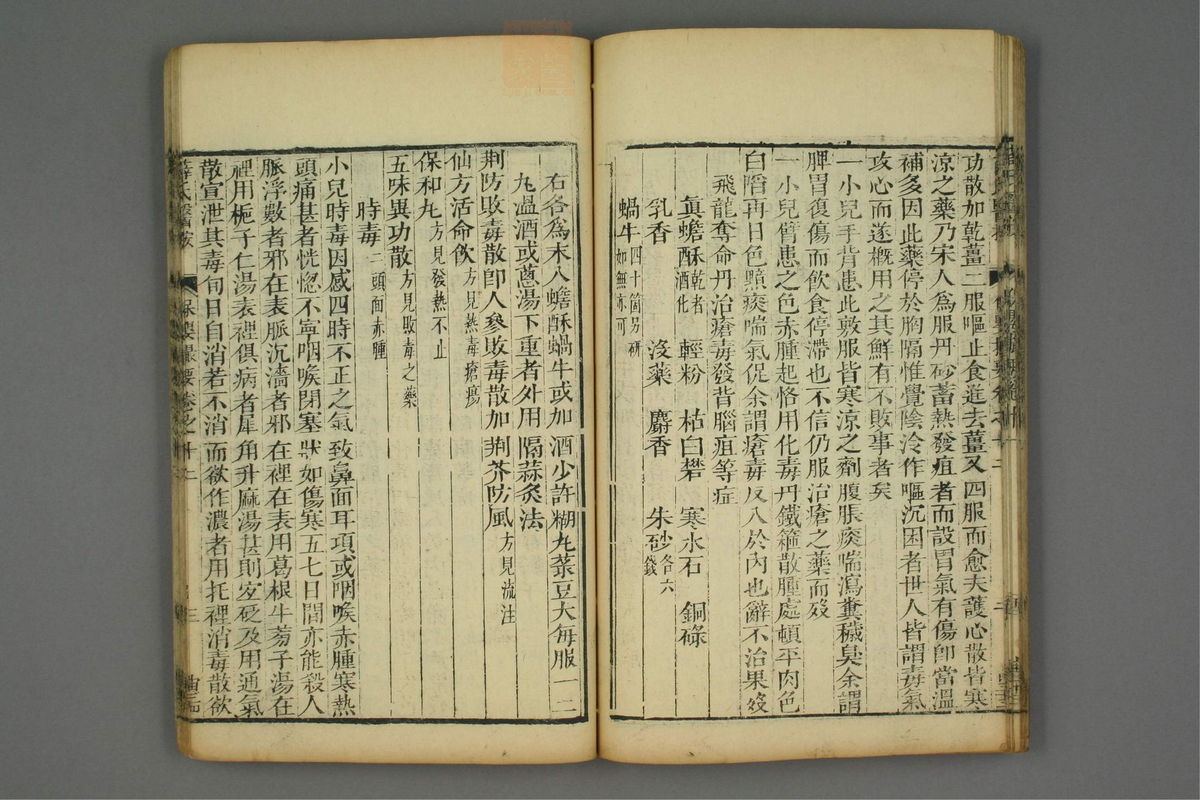 功散加乾薑二服嘔止食進去薑又四服而愈夫護心散皆寒
涼之藥乃宋人為服丹砂蓄熱發疽者而設胃氣有傷卽當溫
補多因此藥停於胸膈惟覺陰冷作嘔沉困者世人皆謂毒氣
攻心而遂槪用之其鮮有不敗事者矣
一小兒手背患此敷服皆寒涼之劑腹脹痰喘瀉糞穢臭余謂
脾胃復傷而飲食停滯也不信仍服治瘡之藥而歿
一小兒臂患之色赤腫起恪用化毒丹鐵箍散腫處頓平肉色
白暗再日色黯痰喘氣促余謂瘡毒反入於內也辭不治果歿
飛龍奪命丹治瘡毒發背腦疽等症
眞蟾酥乾者酒化 輕粉 枯白礬 寒水石 銅碌
乳香 沒藥 麝香 朱砂各六錢
蝸牛四十箇另研如無亦可
右各為末入蟾酥蝸牛或加酒少許糊丸菉豆大每服一二
丸溫酒或蔥湯下重者外用隔蒜灸法
荆防敗毒散卽人參敗毒散加荆芥防風方見流注
仙方活命飲方見熱毒瘡瘍
保和丸方見發熱不止
五味異功散方見敗毒之藥
時毒二頭面赤腫
小兒時毒因感四時不正之氣致鼻面耳項或咽喉赤腫寒熱
頭痛甚者恍惚不寧咽喉閉塞狀如傷寒五七日間亦能殺人
脈浮數者邪在表脈沉濇者邪在裡在表用葛根牛蒡子湯在
裡用梔子仁湯表裡俱病者犀角升麻湯甚則宜砭及用通氣
散宣泄其毒旬日自消若不消而欲作濃者用托裡消毒散欲
薛氏醫按 保嬰撮要卷之十二 三